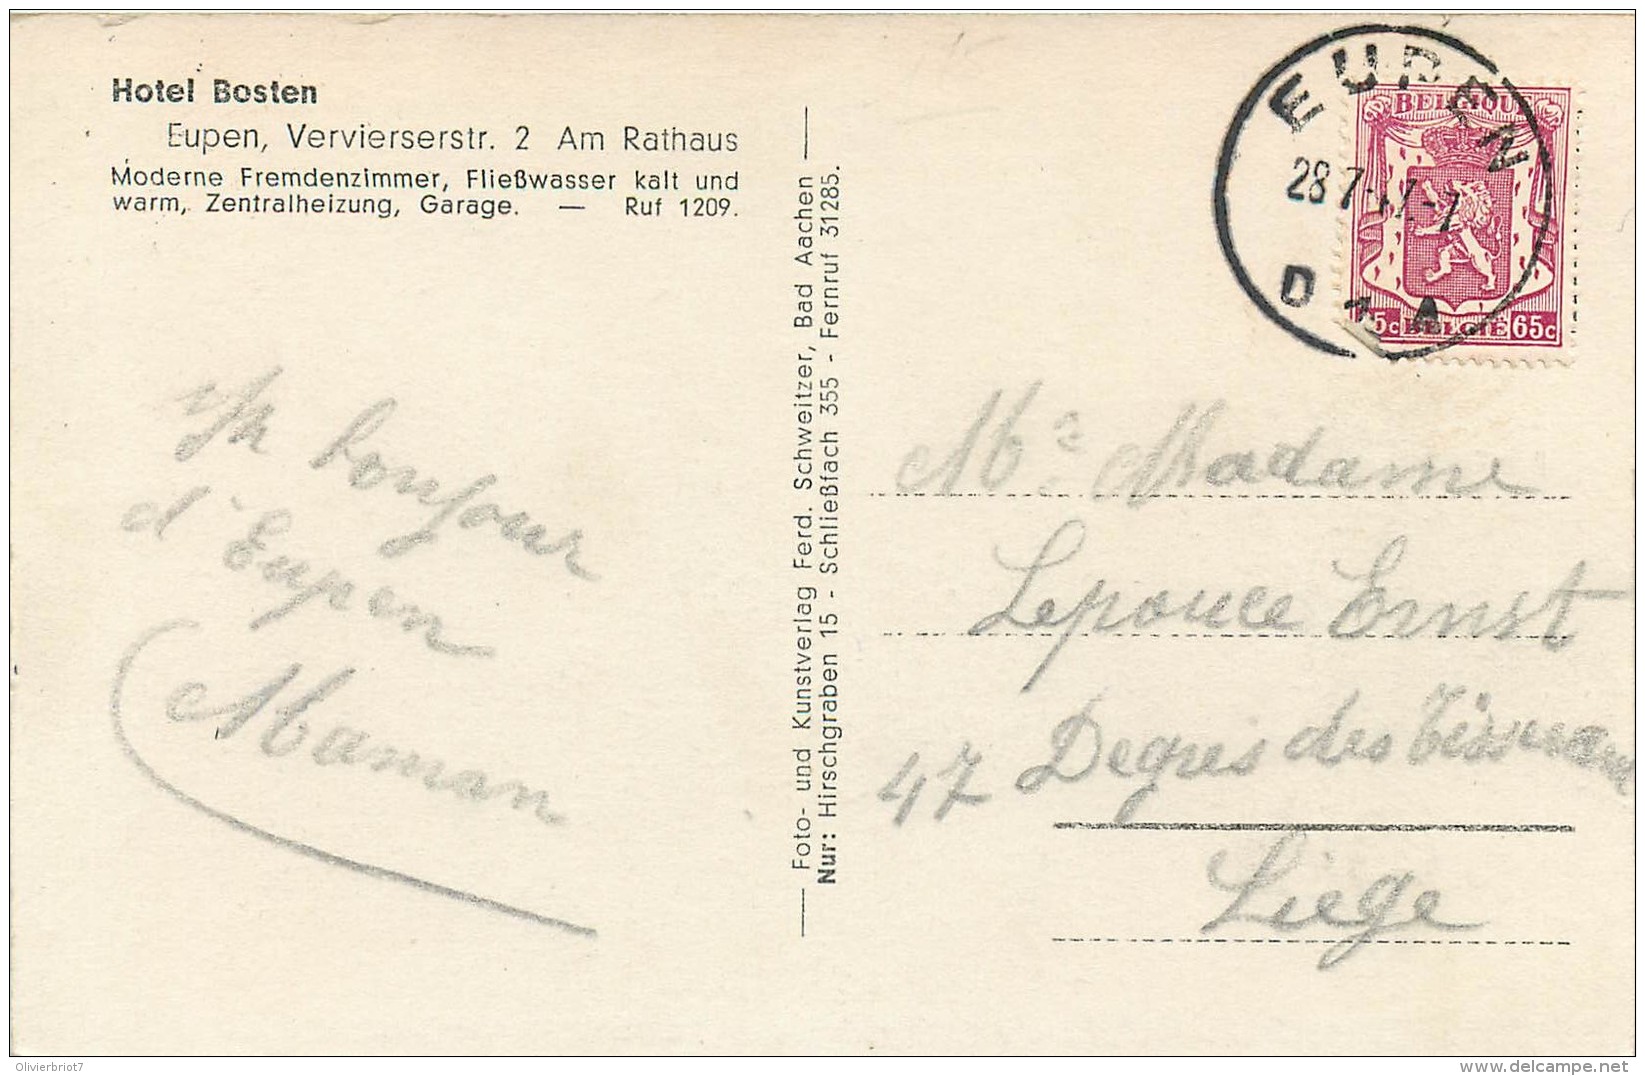 Hotel Bosten
Eupen, Vervierserstr. 2 Am Rathaus
Moderne Fremdenzimmer, Fließwasser kalt und
warm, Zentralheizung, Garage. — Ruf 1209.
bonjour
d'Eupen
Maman
Foto- und Kunstverlag Ferd. Schweitzer, Bad Aachen
Nur: Hirschgraben 15 - Schließfach 355 - Fernruf 31285.
EUPEN
28 7-47.-7
D 1 A
BELGIQUE
5c BELGIË 65c
Mr Madame
Lepouce Ernst
47 Degrés des
Liege
Olivierbriot7
www.delcampe.net